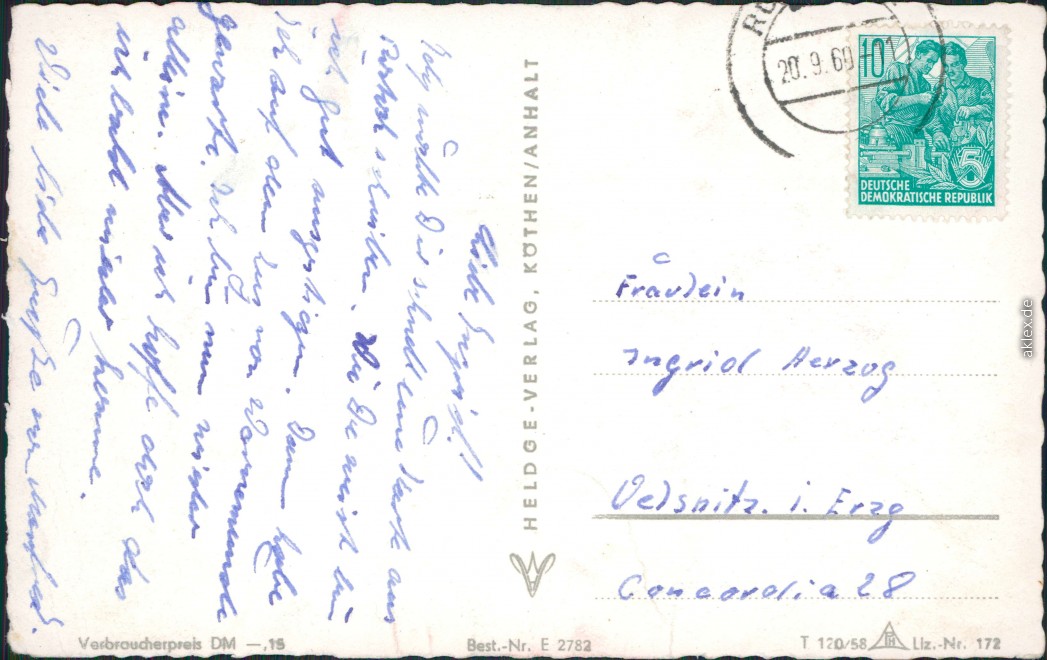 Liebe Ingrid!
Ich wollte Dir schnell eine Karte aus
Rostock schreiben. Wie Du weist bin
ich gut ausgestigen. Dann habe
ich auf den Zug von Warnemünde
gewartet. Ich bin nun wieder
allein. Aber ich hoffe doch das
ich bald wieder komme.
Viele liebe Grüße von Manfred.
HELDGE-VERLAG, KÖTHEN/ANHALT
20.9.60
10
5
DEUTSCHE
DEMOKRATISCHE REPUBLIK
Fräulein
Ingrid Herzog
Oelsnitz. i. Erzg
Concordia 28
Verbraucherpreis DM —,15
Best.-Nr. E 2782
T 120/58
Liz.-Nr. 172
aklex.de